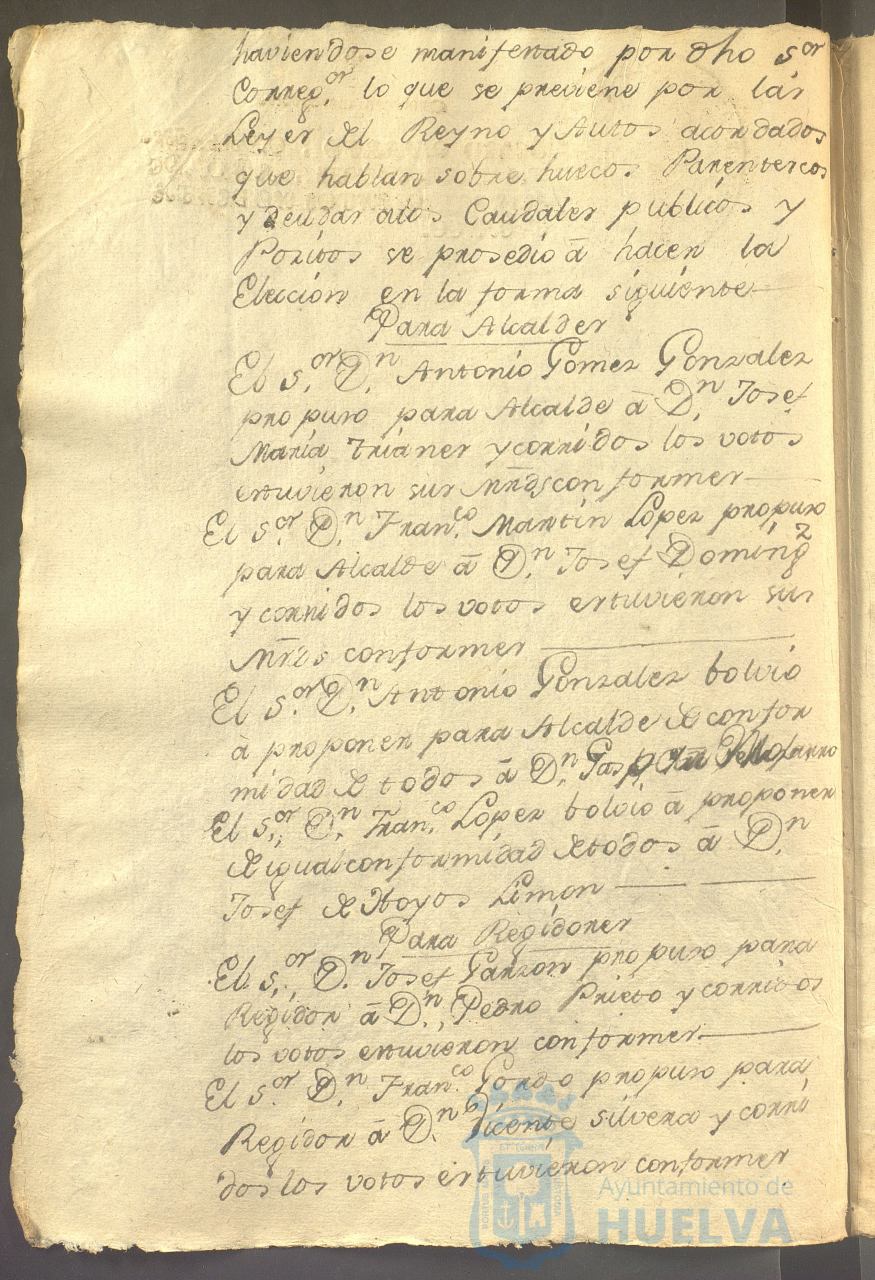 haviendose manifestado por dho Sor
Correg.or lo que se previene por las
Leyes del Reyno y Autos acordados
que hablan sobre huecos Parentescos
y deudas a los Caudales publicos y
Positos se prosedio â hacer la
Eleccion en la forma siguiente
Para Alcaldes
El S.or D.n Antonio Gomez Gonzalez
propuso para Alcalde â D.n Josef
Maria Trianes y corridos los votos
estuvieron sus Mrds conformes
El S.or D.n Fran.co Martin Lopez propuso
para Alcalde â D.n Josef Doming.z
y corridos los votos estuvieron sus
Mrds conformes
El S.or D.n Antonio Gonzalez bolvio
â proponer para Alcalde de confor
midad de todos â D.n Gaspar
El S.or D.n Fran.co Lopez bolvio â proponer
de igual conformidad de todos â D.n
Josef de Hoyos Limon
Para Regidores
El S.or D.n Josef Garzon propuso para
Regidor â D.n Pedro Prieto y corridos
los votos estuvieron conformes
El S.or D.n Fran.co Gordo propuso para
Regidor â D.n Vicente Silvera y corri
dos los votos estuvieron conformes
Ayuntamiento de
HUELVA